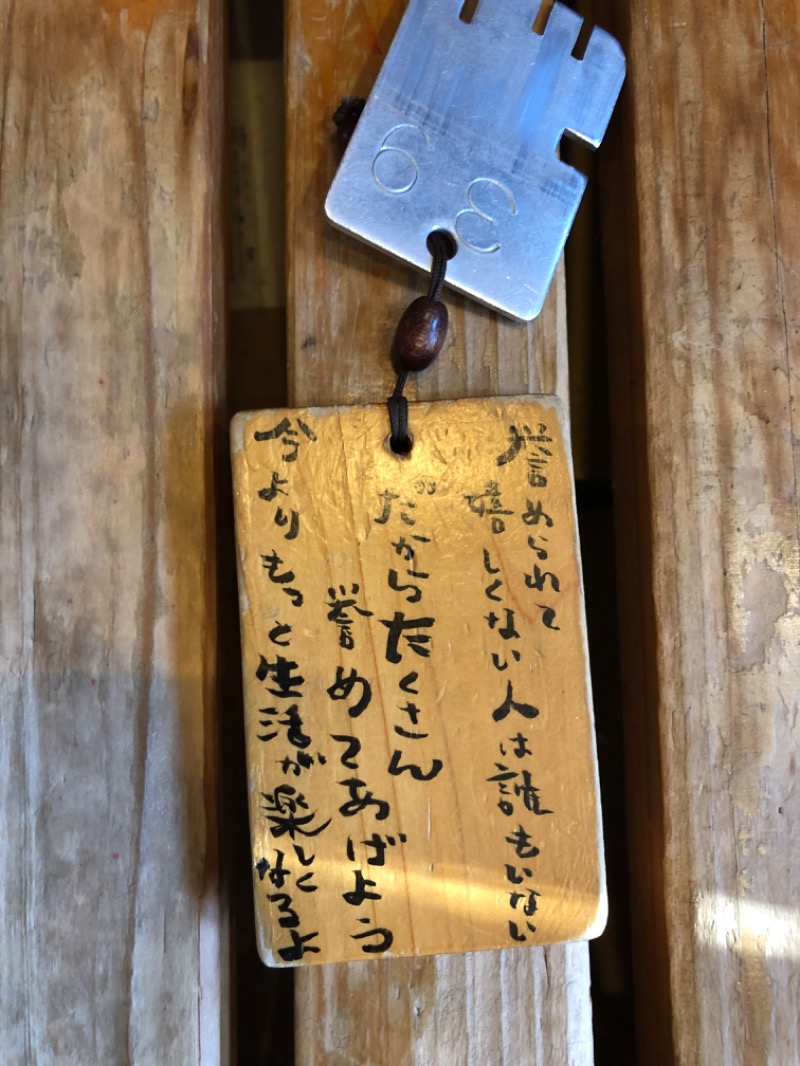 誉められて
嬉しくない人は誰もいない
だからたくさん
誉めてあげよう
今よりもっと生活が楽しく
なるよ
63